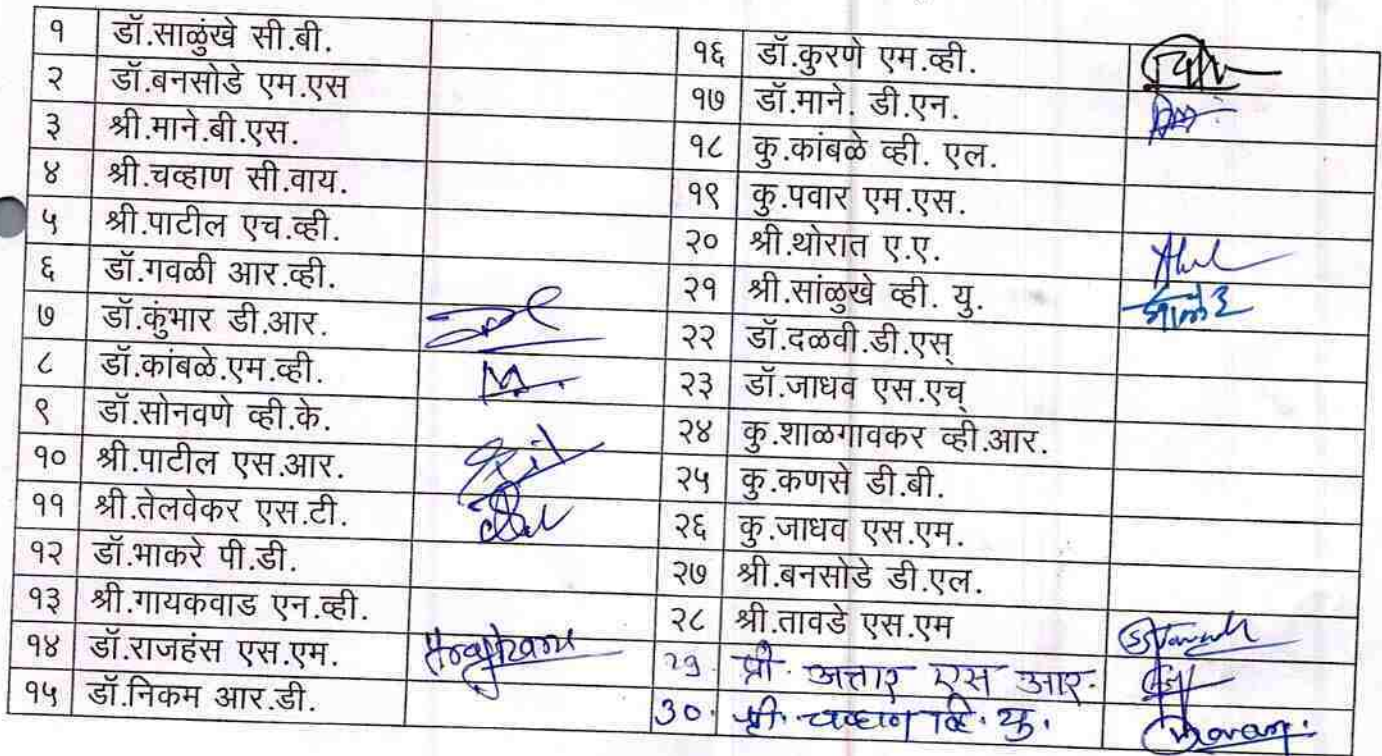 १ डॉ.साळुंखे सी.बी.
२ डॉ.बनसोडे एम.एस
३ श्री.माने.बी.एस.
४ श्री.चव्हाण सी.वाय.
५ श्री.पाटील एच.व्ही.
६ डॉ.गवळी आर.व्ही.
७ डॉ.कुंभार डी.आर.
८ डॉ.कांबळे.एम.व्ही.
९ डॉ.सोनवणे व्ही.के.
१० श्री.पाटील एस.आर.
११ श्री.तेलवेकर एस.टी.
१२ डॉ.भाकरे पी.डी.
१३ श्री.गायकवाड एन.व्ही.
१४ डॉ.राजहंस एस.एम.
१५ डॉ.निकम आर.डी.
१६ डॉ.कुरणे एम.व्ही.
१७ डॉ.माने. डी.एन.
१८ कु.कांबळे व्ही. एल.
१९ कु.पवार एम.एस.
२० श्री.थोरात ए.ए.
२१ श्री.सांळुखे व्ही. यु.
२२ डॉ.दळवी.डी.एस्
२३ डॉ.जाधव एस.एच्
२४ कु.शाळगावकर व्ही.आर.
२५ कु.कणसे डी.बी.
२६ कु.जाधव एस.एम.
२७ श्री.बनसोडे डी.एल.
२८ श्री.तावडे एस.एम
29. प्री. अत्तार एस आर.
30. प्री. चव्हाण व्हि. यु.